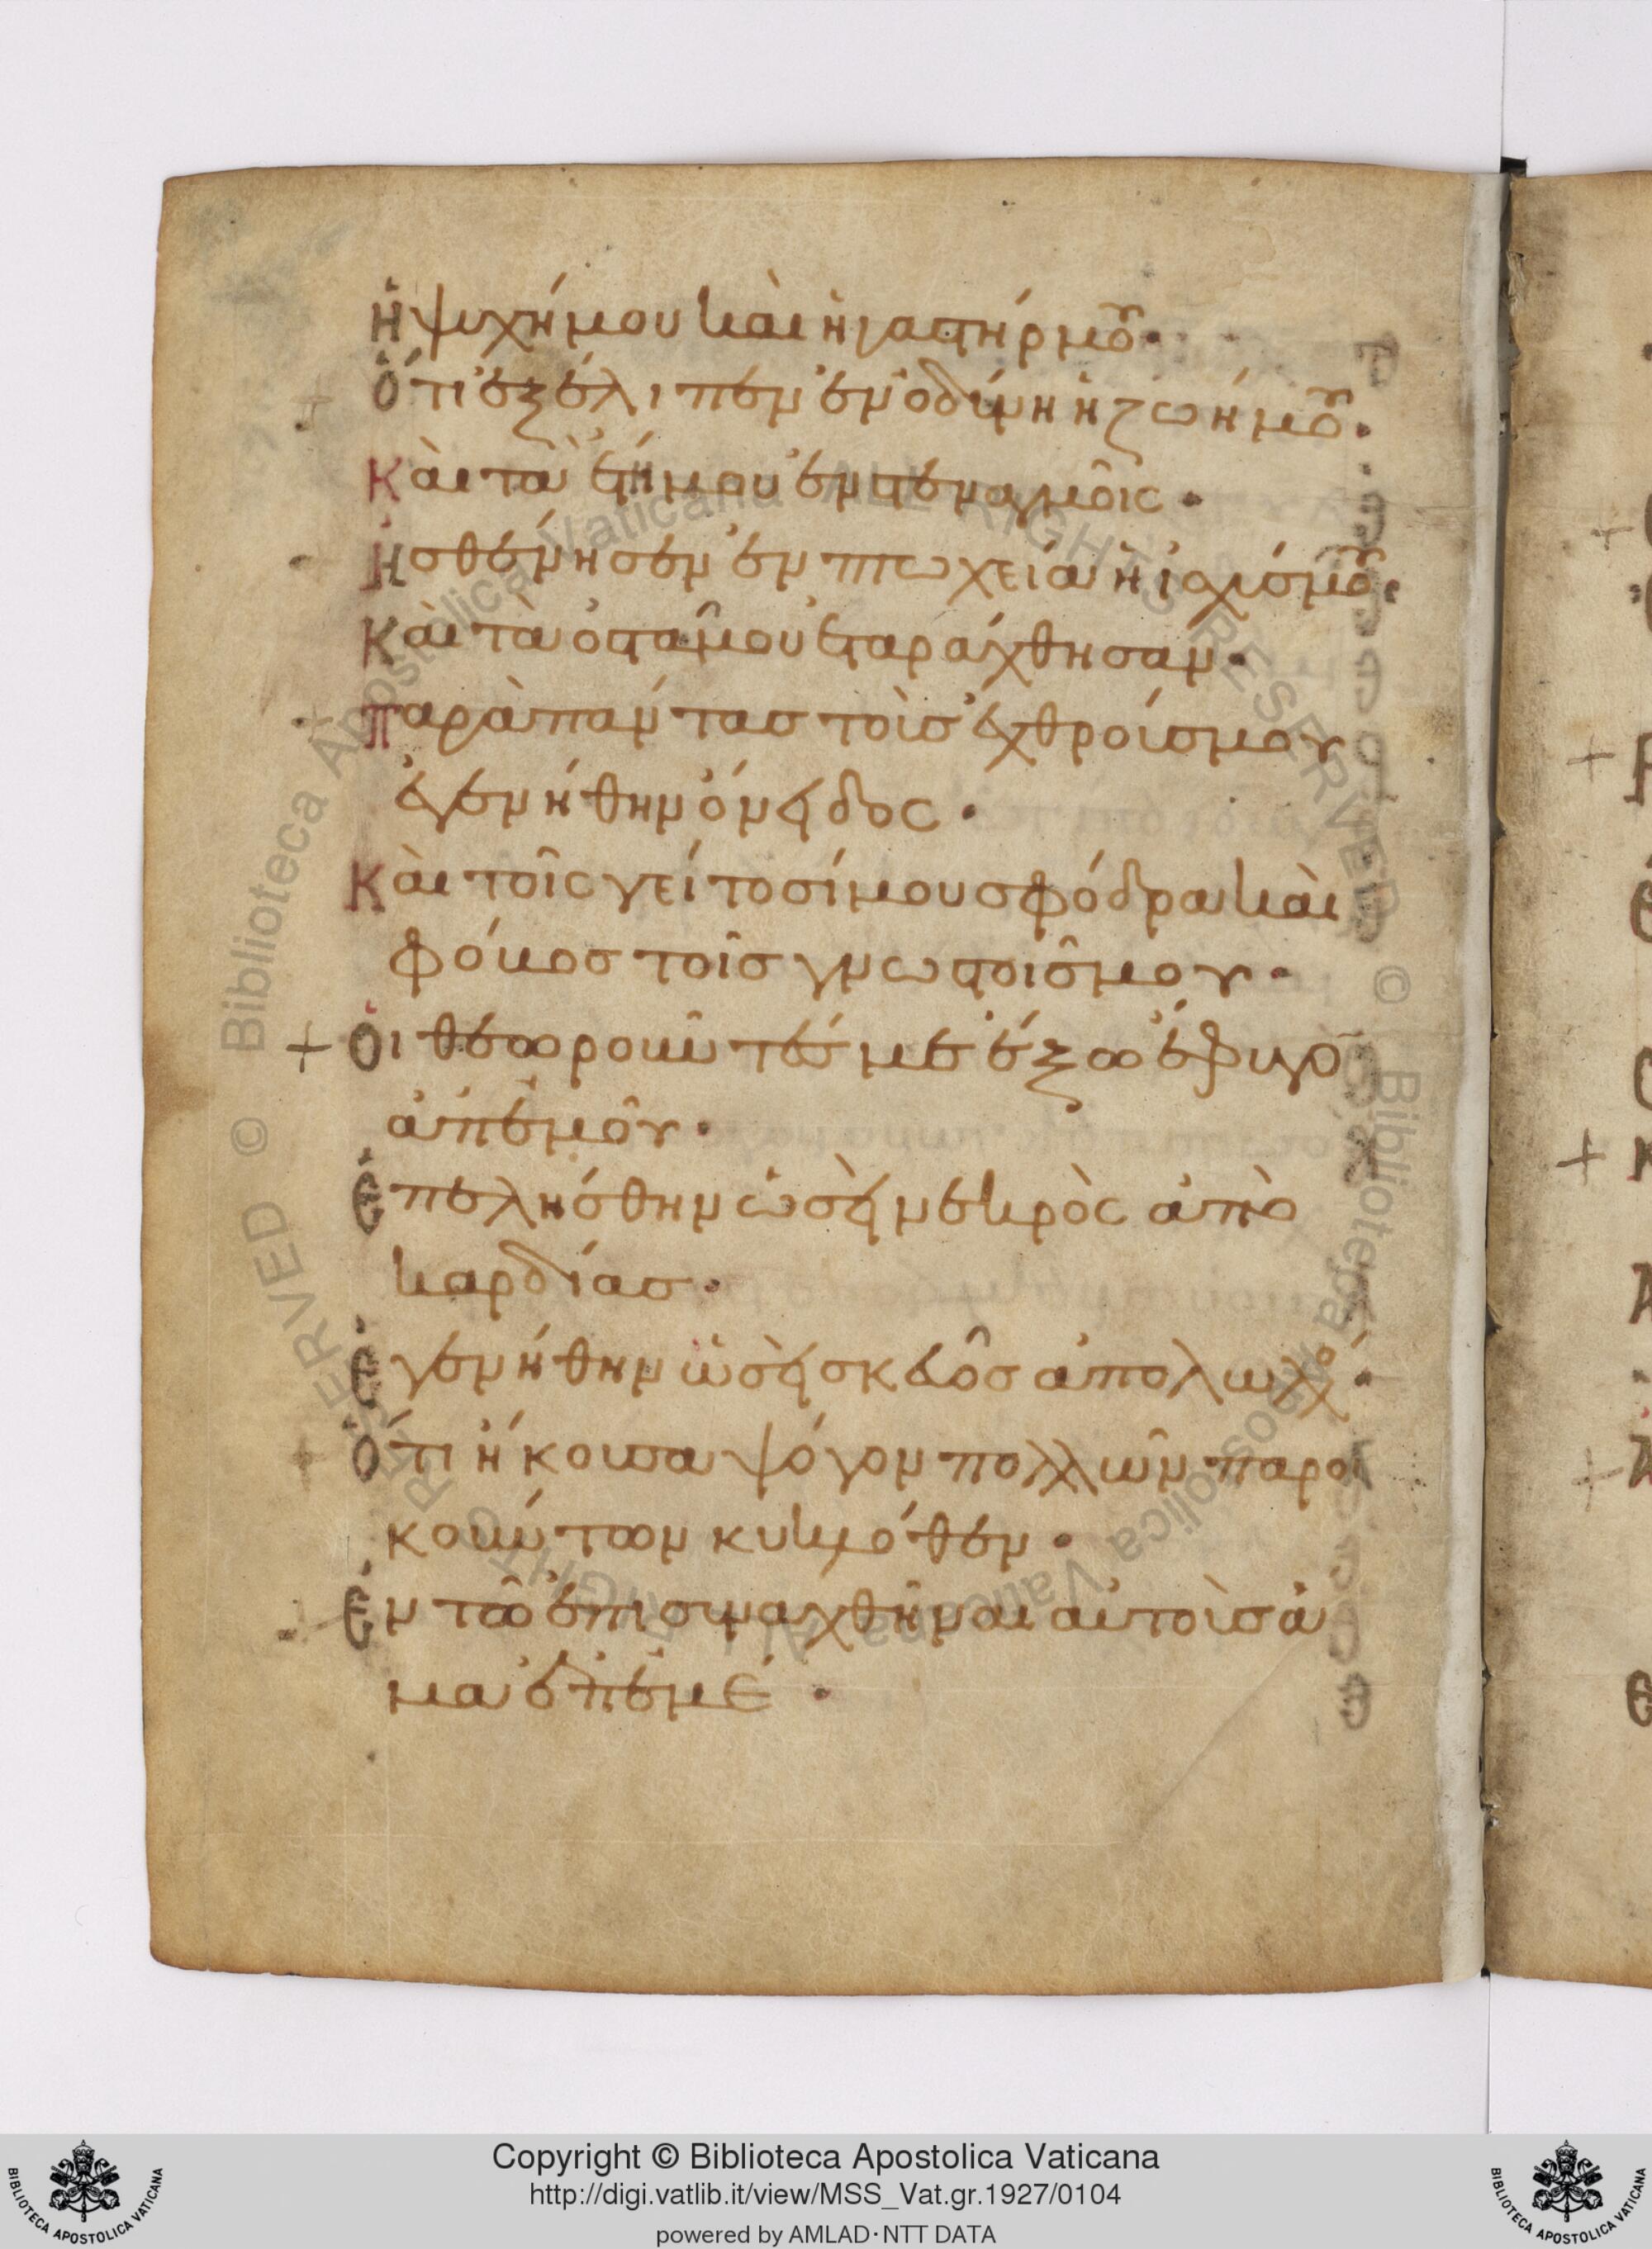 ἡ ψυχή μου καὶ ἡ γαστήρ μου·
ὅτι ἐξέλιπεν ἐν ὀδύνη ἡ ζωή μου·
Καὶ τὰ ἔτη μου ἐν στεναγμοῖς·
ἠσθένησεν ἐν πτωχεία ἡ ἰσχύς μου·
Καὶ τὰ ὀστᾶ μου ἐταράχθησαν·
παρὰ πάντας τοὺς ἐχθρούς μου
ἐγενήθην ὄνειδος·
Καὶ τοῖς γείτοσί μου σφόδρα καὶ
φόβος τοῖς γνωστοῖς μου·
+ οἱ θεωροῦντές με ἔξω ἔφυγον
ἀπ' ἐμοῦ·
ἐπελήσθην ὡσεὶ νεκρὸς ἀπὸ
καρδίας·
ἐγενήθην ὡσεὶ σκεῦος ἀπολωλός·
ὅτι ἤκουσα ψόγον πολλῶν παροι
κούντων κυκλόθεν·
ἐν τῶ ἐπισυναχθῆναι αὐτοὺς ἅ
μα ἐπ' ἐμέ·
Copyright © Biblioteca Apostolica Vaticana
http://digi.vatlib.it/view/MSS_Vat.gr.1927/0104
powered by AMLAD·NTT DATA
BIBLIOTECA APOSTOLICA VATICANA
BIBLIOTECA APOSTOLICA VATICANA